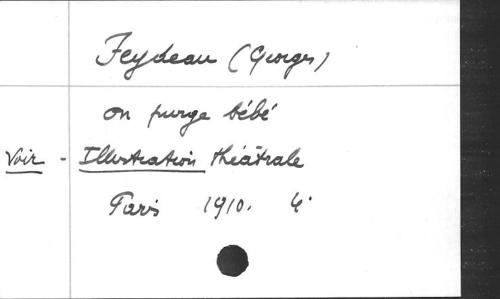 Feydeau (Georges)
on purge bébé
Voir - Illustration théâtrale
Paris 1910. 4°